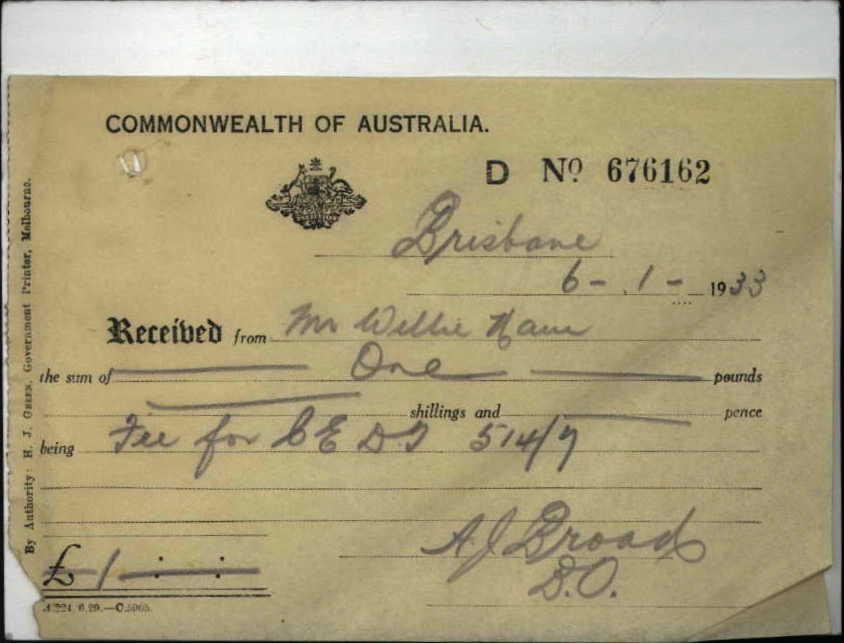 COMMONWEALTH OF AUSTRALIA.
D Nº 676162
Brisbane
6 - 1 - 1933
Received from Mr Willie
the sum of One pounds
shillings and pence
being Fee for C E D T 514/7
A.J. Broad
£ 1 : :
By Authority: H. J. GREEN, Government Printer, Melbourne.